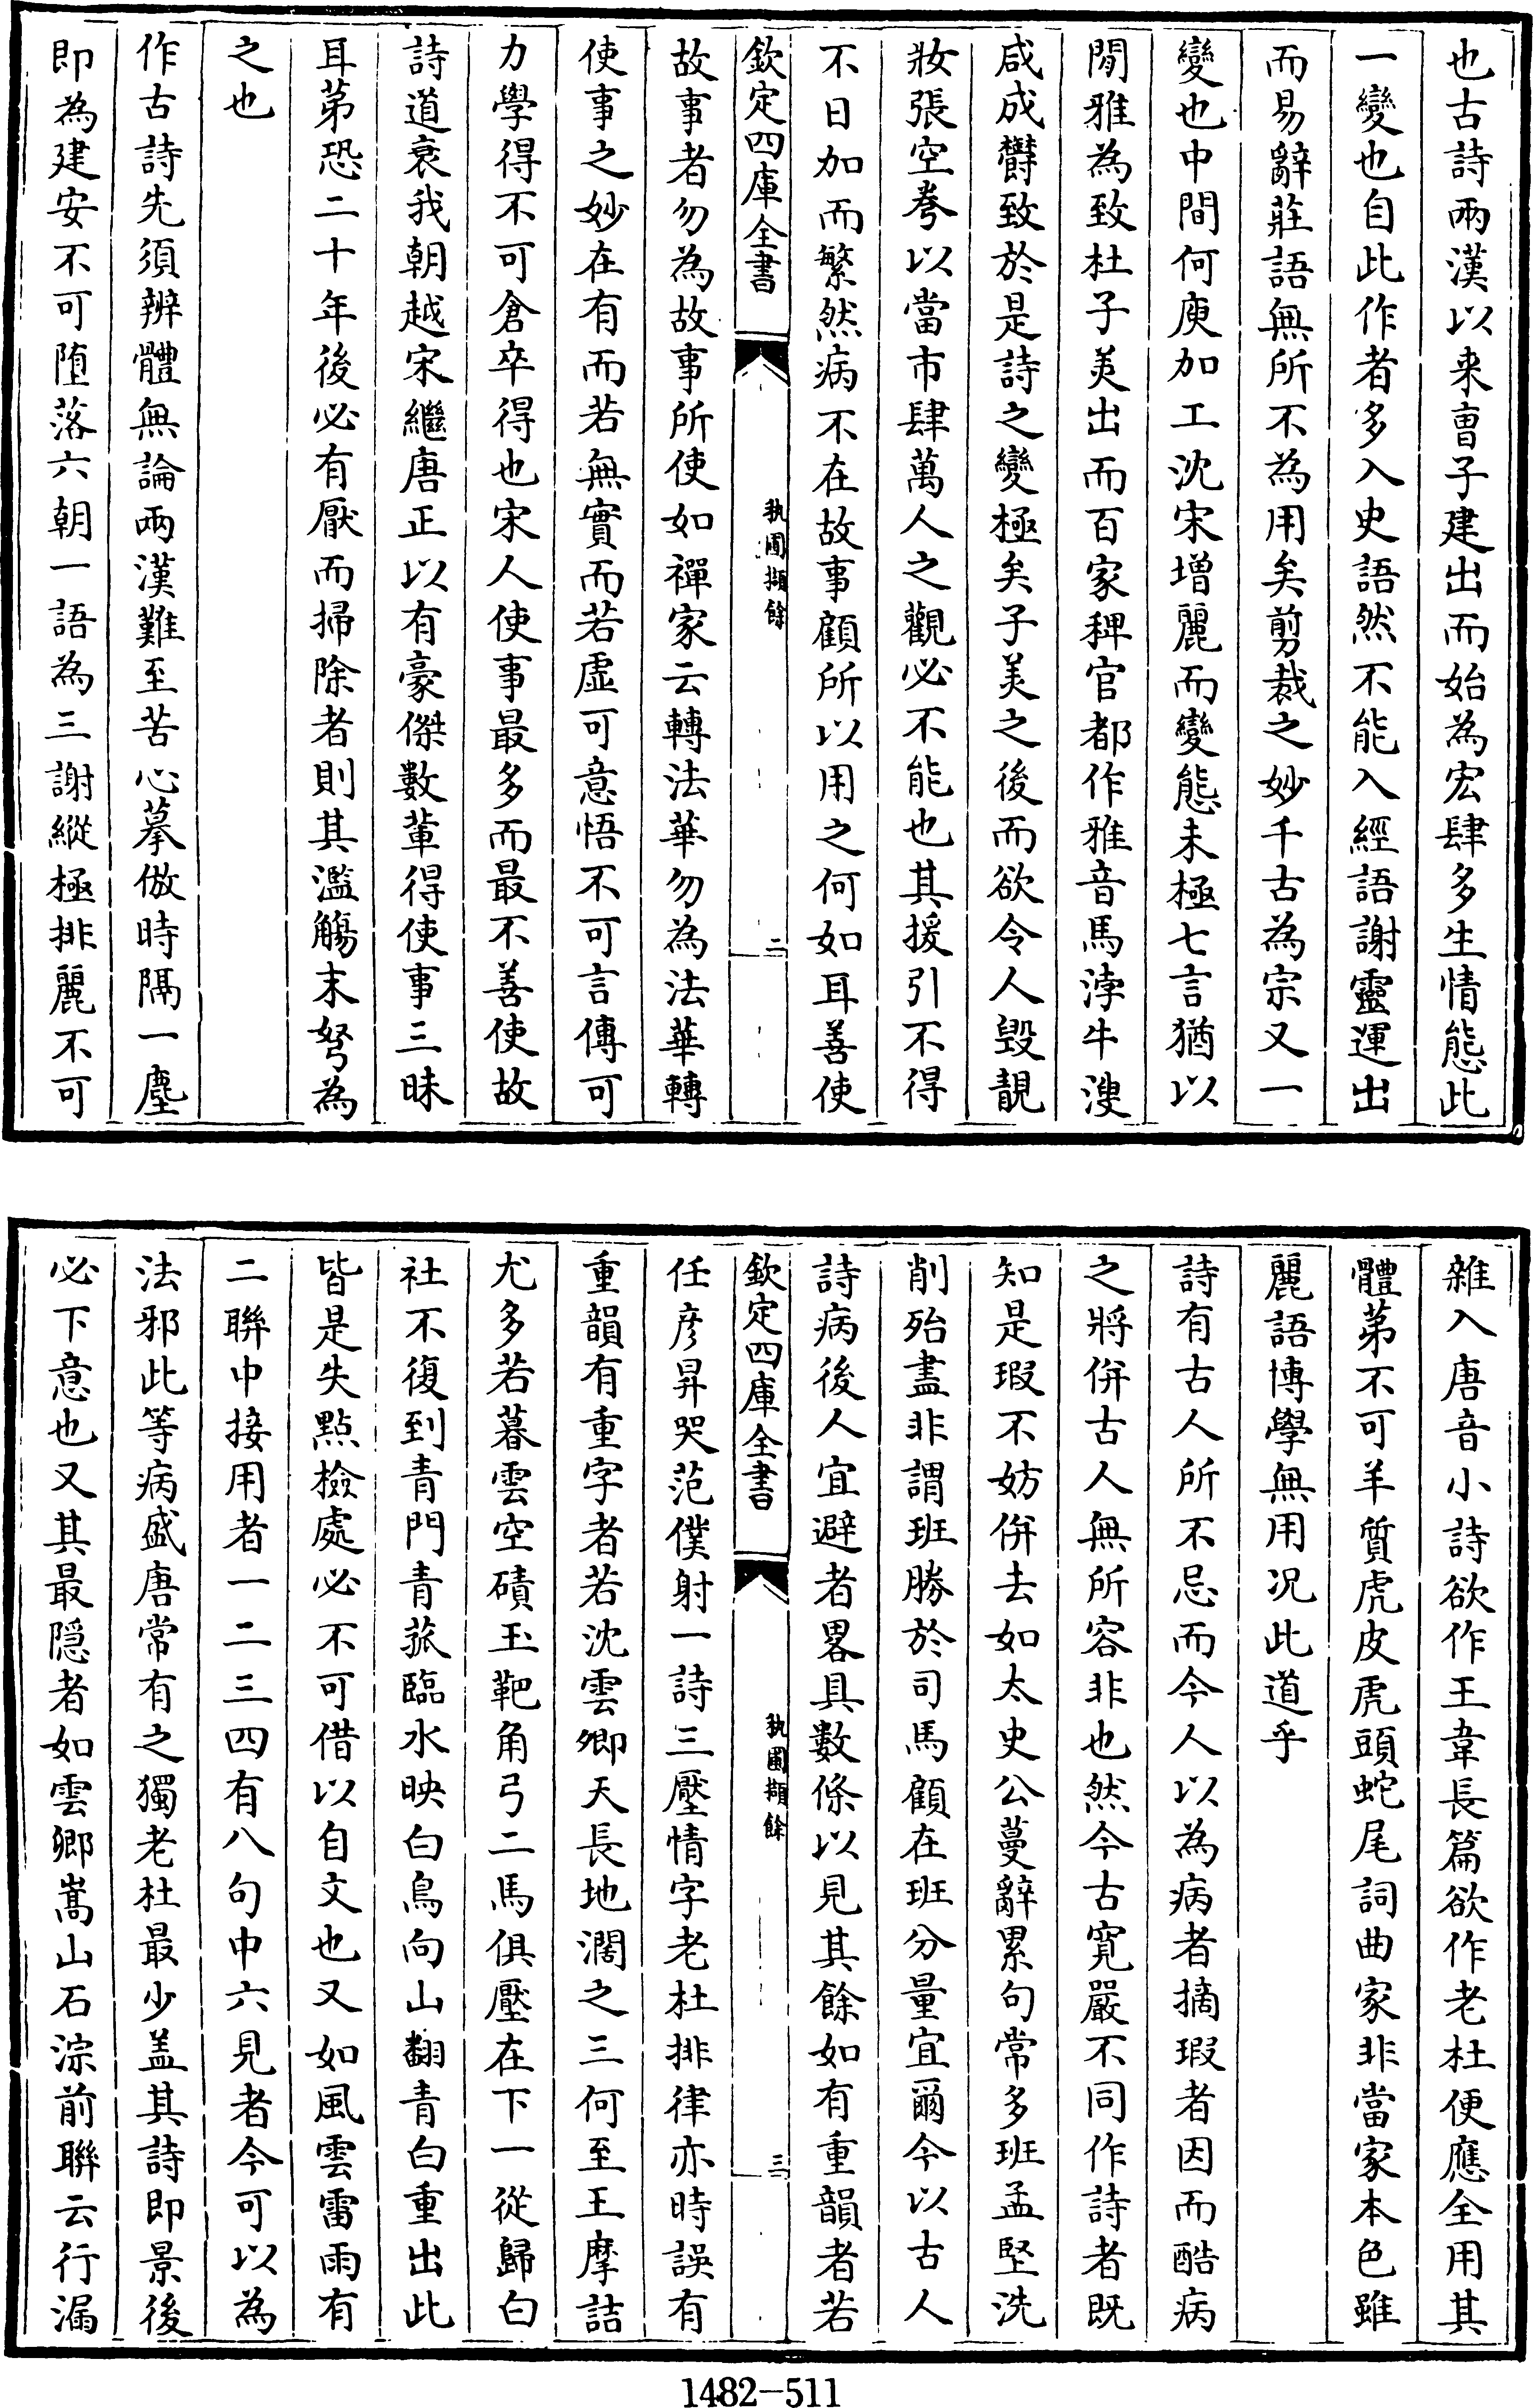 也古詩兩漢以来曹子建出而始為宏肆多生情態此
一變也自此作者多入史語然不能入經語謝靈運出
而易辭莊語無所不為用矣剪裁之妙千古為宗又一
變也中間何庾加工沈宋增麗而變態未極七言猶以
閒雅為致杜子美出而百家稗官都作雅音馬浡牛溲
咸成欝致於是詩之變極矣子美之後而欲令人毀靚
妝張空弮以當市肆萬人之觀必不能也其援引不得
不日加而繁然病不在故事顧所以用之何如耳善使
欽定四庫全書
執圃擷餘
二
故事者勿為故事所使如禪家云轉法華勿為法華轉
使事之妙在有而若無實而若虛可意悟不可言傳可
力學得不可倉卒得也宋人使事最多而最不善使故
詩道衰我朝越宋繼唐正以有豪傑數軰得使事三昧
耳苐恐二十年後必有厭而掃除者則其濫觴末弩為
之也
作古詩先須辨體無論兩漢難至苦心摹倣時隔一塵
即為建安不可堕落六朝一語為三謝縱極排麗不可
雜入唐音小詩欲作王韋長篇欲作老杜便應全用其
體苐不可羊質虎皮虎頭蛇尾詞曲家非當家本色雖
麗語博學無用况此道乎
詩有古人所不忌而今人以為病者摘瑕者因而酷病
之將併古人無所容非也然今古寛嚴不同作詩者既
知是瑕不妨併去如太史公蔓辭累句常多班孟堅洗
削殆盡非謂班勝於司馬顧在班分量宜爾今以古人
詩病後人宜避者畧具數條以見其餘如有重韻者若
欽定四庫全書
執圃擷餘
三
任彦昇哭范僕射一詩三壓情字老杜排律亦時誤有
重韻有重字者若沈雲卿天長地濶之三何至王摩詰
尤多若暮雲空磧玉靶角弓二馬俱壓在下一從歸白
社不復到青門青菰臨水映白鳥向山翻青白重出此
皆是失點檢處必不可借以自文也又如風雲雷雨有
二聨中接用者一二三四有八句中六見者今可以為
法邪此等病盛唐常有之獨老杜最少盖其詩即景後
必下意也又其最隠者如雲卿嵩山石淙前聨云行漏
1482-511